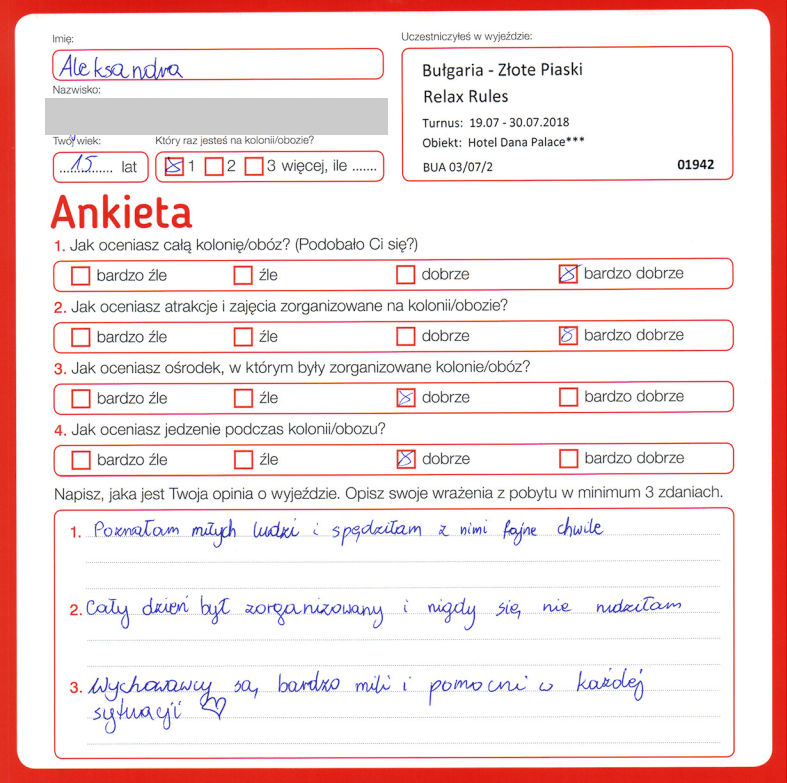 Imię:
Aleksandra
Nazwisko:
Twój wiek:
15 lat
Który raz jesteś na kolonii/obozie?
1 2 3 więcej, ile .......
Uczestniczyłeś w wyjeździe:
Bułgaria - Złote Piaski
Relax Rules
Turnus: 19.07 - 30.07.2018
Obiekt: Hotel Dana Palace***
BUA 03/07/2 01942
Ankieta
1. Jak oceniasz całą kolonię/obóz? (Podobało Ci się?)
bardzo źle źle dobrze bardzo dobrze
2. Jak oceniasz atrakcje i zajęcia zorganizowane na kolonii/obozie?
bardzo źle źle dobrze bardzo dobrze
3. Jak oceniasz ośrodek, w którym były zorganizowane kolonie/obóz?
bardzo źle źle dobrze bardzo dobrze
4. Jak oceniasz jedzenie podczas kolonii/obozu?
bardzo źle źle dobrze bardzo dobrze
Napisz, jaka jest Twoja opinia o wyjeździe. Opisz swoje wrażenia z pobytu w minimum 3 zdaniach.
1. Poznałam miłych ludzi i spędziłam z nimi fajne chwile
2. Cały dzień był zorganizowany i nigdy się nie nudziłam
3. Wychowawcy są bardzo mili i pomocni w każdej
sytuacji ♡